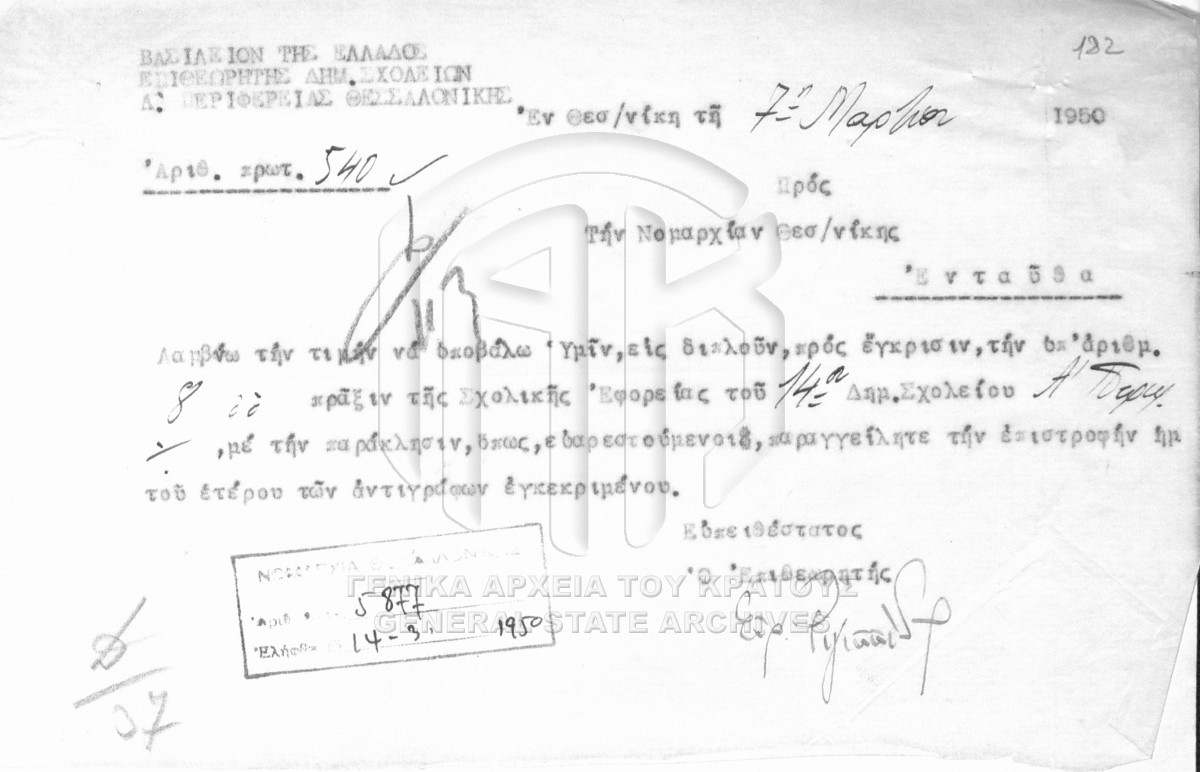 182
ΒΑΣΙΛΕΙΟΝ ΤΗΣ ΕΛΛΑΔΟΣ
ΕΠΙΘΕΩΡΗΤΗΣ ΔΗΜ.ΣΧΟΛΕΙΩΝ
Α: ΠΕΡΙΦΕΡΕΙΑΣ ΘΕΣΣΑΛΟΝΙΚΗΣ
Ἐν Θεσ/νίκη τῇ 7ῃ Μαρτίου 1950
Ἀριθ. πρωτ. 540
Πρός
Τήν Νομαρχίαν Θεσ/νίκης
Ἐνταῦθα
Λαμβνω τήν τιμήν νά ὑποβάλω Ὑμῖν,εἰς διπλοῦν,πρός ἔγκρισιν,τήν ὑπ'ἀριθμ.
8 πρᾶξιν τῆς Σχολικῆς Ἐφορείας τοῦ 14ου Δημ.Σχολείου Α'
,μέ τήν παράκλησιν,ὅπως,εὐαρεστούμενοι,παραγγείλητε τήν ἐπιστροφήν ἡμ
τοῦ ἑτέρου τῶν ἀντιγράφων ἐγκεκριμένου.
Εὐπειθέστατος
Ὁ Ἐπιθεωρητής
ΝΟΜΑΡΧΙΑ ΘΕΣΣΑΛΟΝΙΚΗΣ
Ἀριθ. 5877
Ἐλήφθη 14-3. 1950
ΓΕΝΙΚΑ ΑΡΧΕΙΑ ΤΟΥ ΚΡΑΤΟΥΣ
GENERAL STATE ARCHIVES
Δ
37